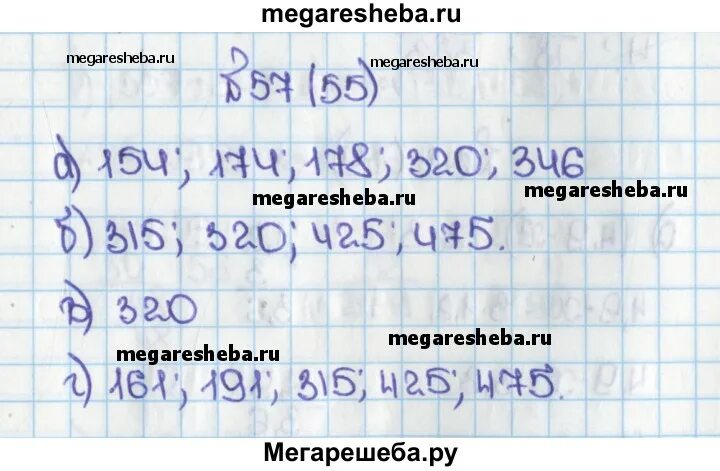 megaresheba.ru
megaresheba.ru № 57 (55) megaresheba.ru
а) 154; 174; 178; 320; 346
megaresheba.ru megaresheba.ru
б) 315; 320; 425; 475.
в) 320
megaresheba.ru megaresheba.ru
г) 161; 191; 315; 425; 475.
Мегарешеба.ру